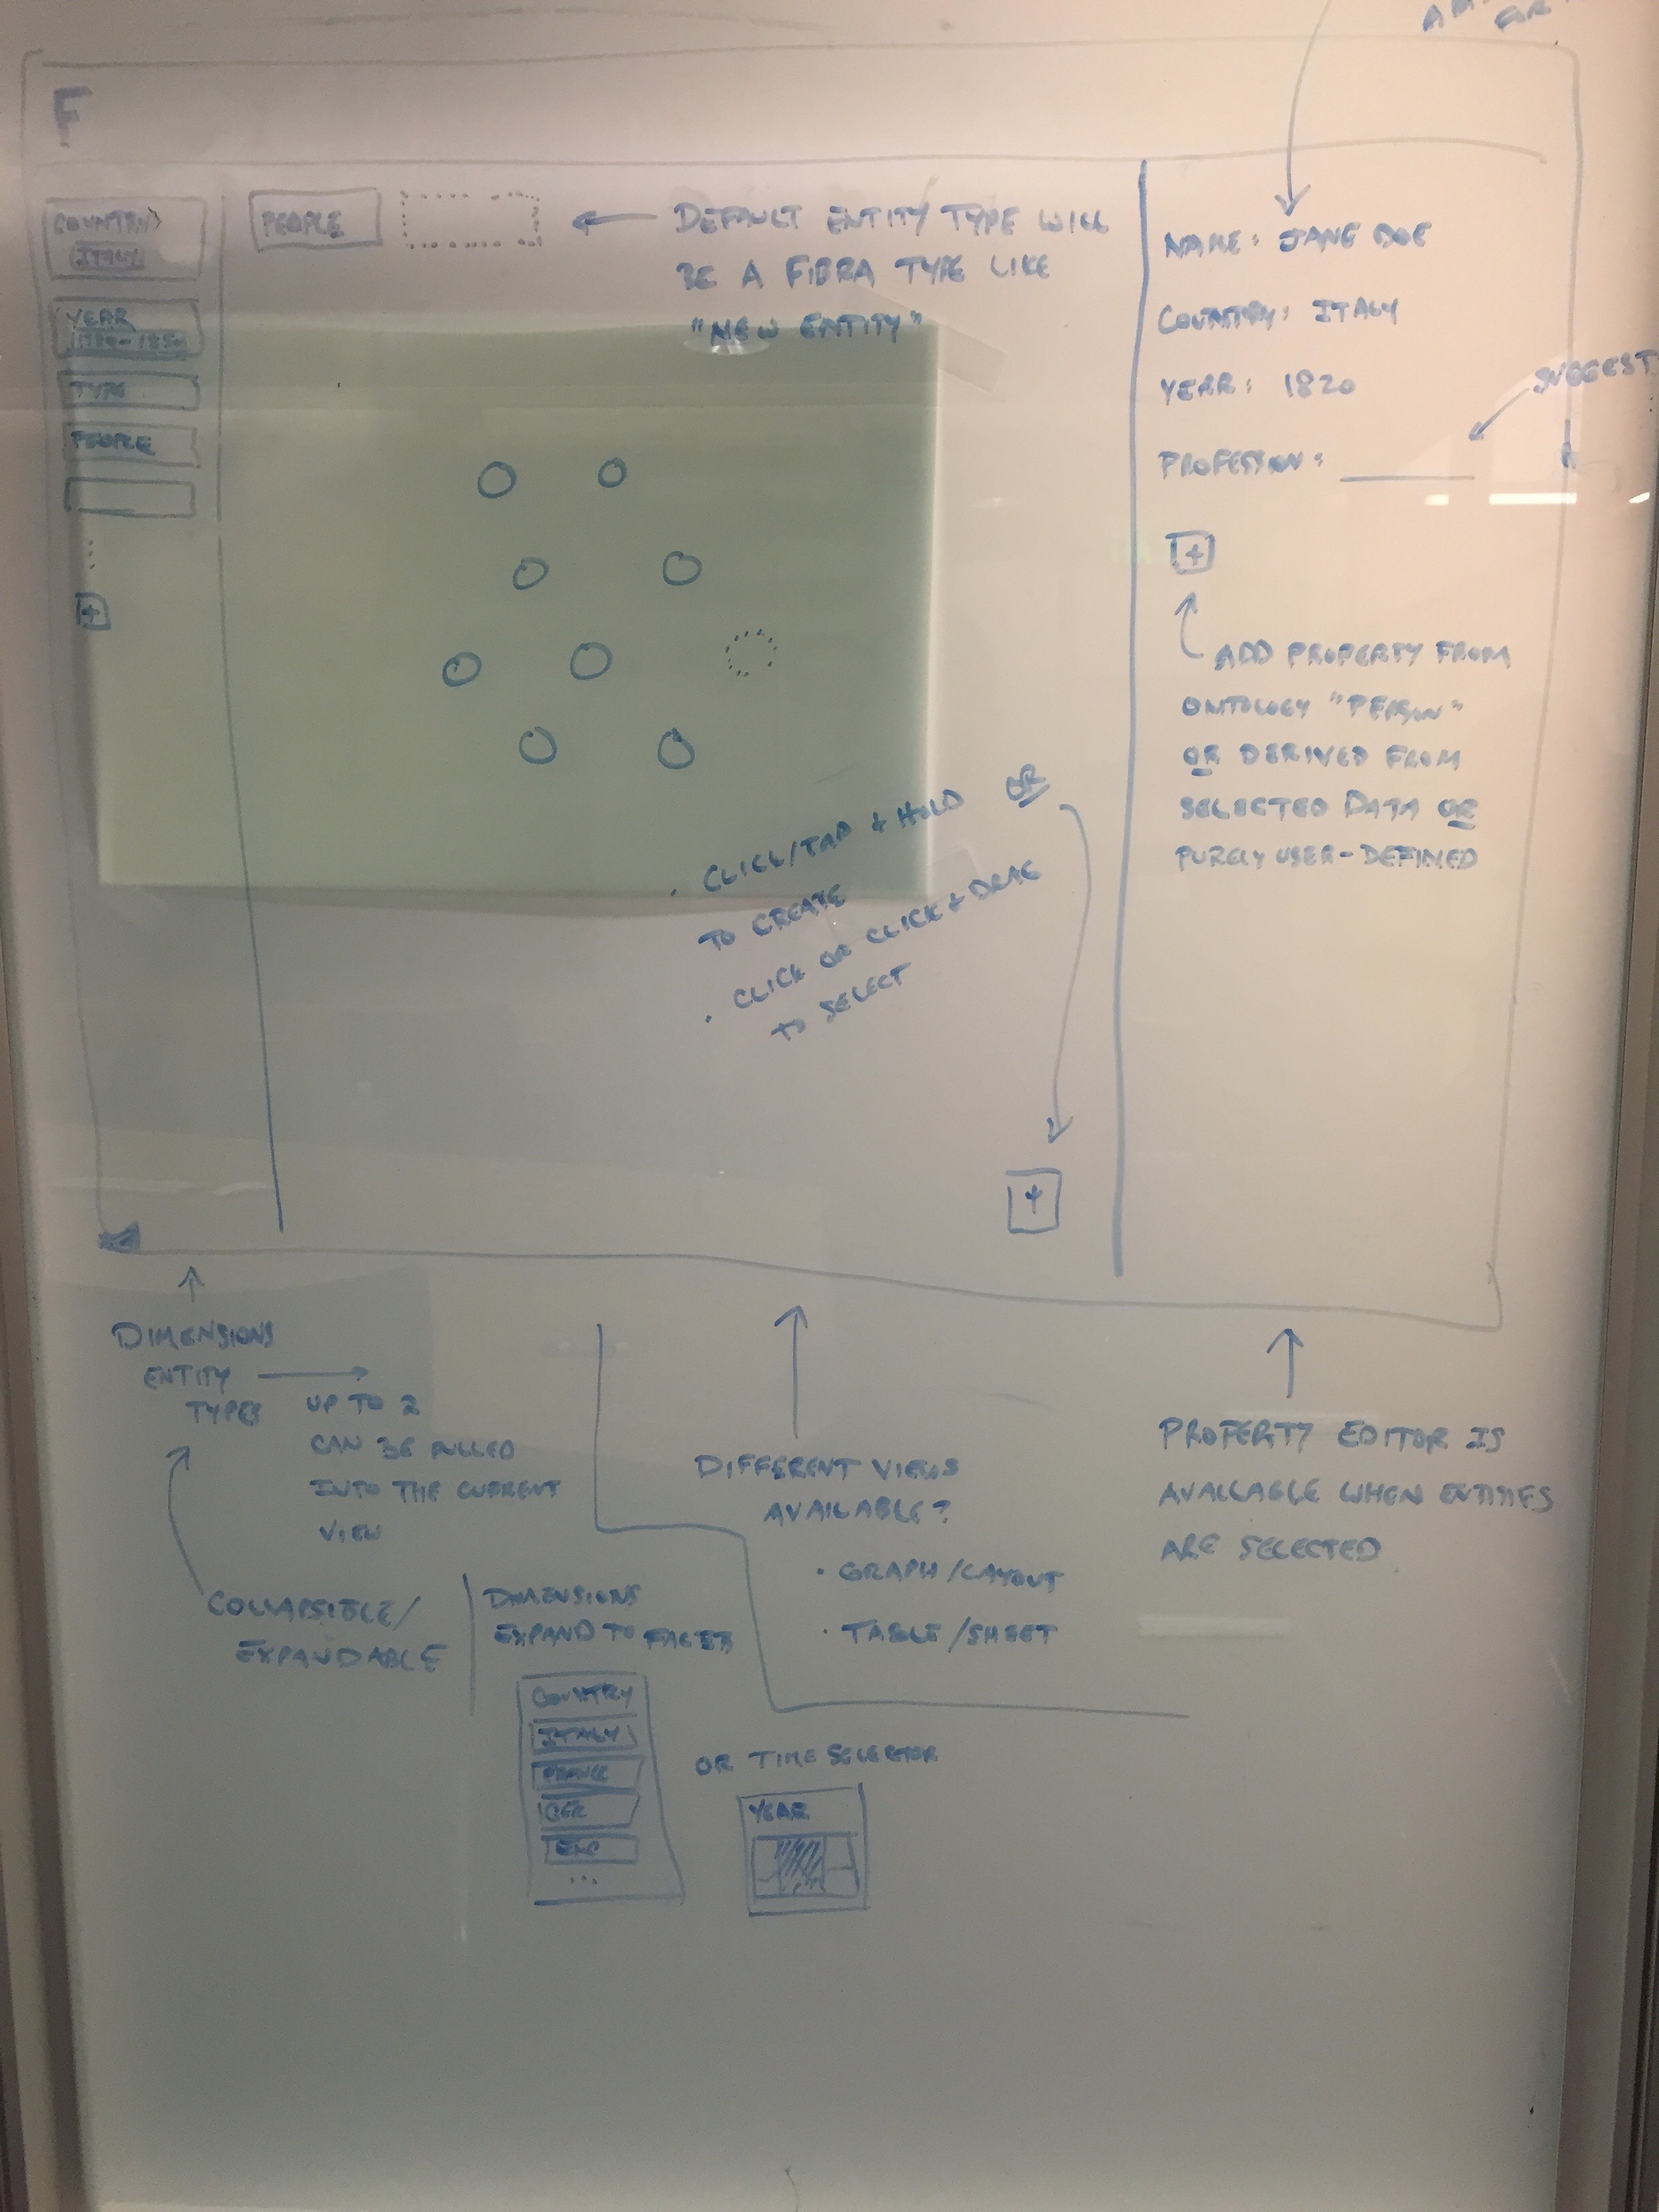 F
COUNTRY
ITALY
YEAR
TYPE
PEOPLE
+
PEOPLE
DEFAULT ENTITY TYPE WILL
BE A FIBRA TYPE LIKE
"NEW ENTITY"
• CLICK/TAP + HOLD OR
TO CREATE
• CLICK OR CLICK + DRAG
TO SELECT
+
NAME: JANE DOE
COUNTRY: ITALY
YEAR: 1820
SUGGEST
PROFESSION:
+
ADD PROPERTY FROM
ONTOLOGY "PERSON"
OR DERIVED FROM
SELECTED DATA OR
PURELY USER-DEFINED
DIMENSIONS
ENTITY
TYPES
UP TO 2
CAN BE PULLED
INTO THE CURRENT
VIEW
COLLAPSIBLE/
EXPANDABLE
DIMENSIONS
EXPAND TO FACETS
COUNTRY
ITALY
FRANCE
GER
ENG
...
OR TIME SELECTOR
YEAR
DIFFERENT VIEWS
AVAILABLE?
• GRAPH/LAYOUT
• TABLE/SHEET
PROPERTY EDITOR IS
AVAILABLE WHEN ENTITIES
ARE SELECTED